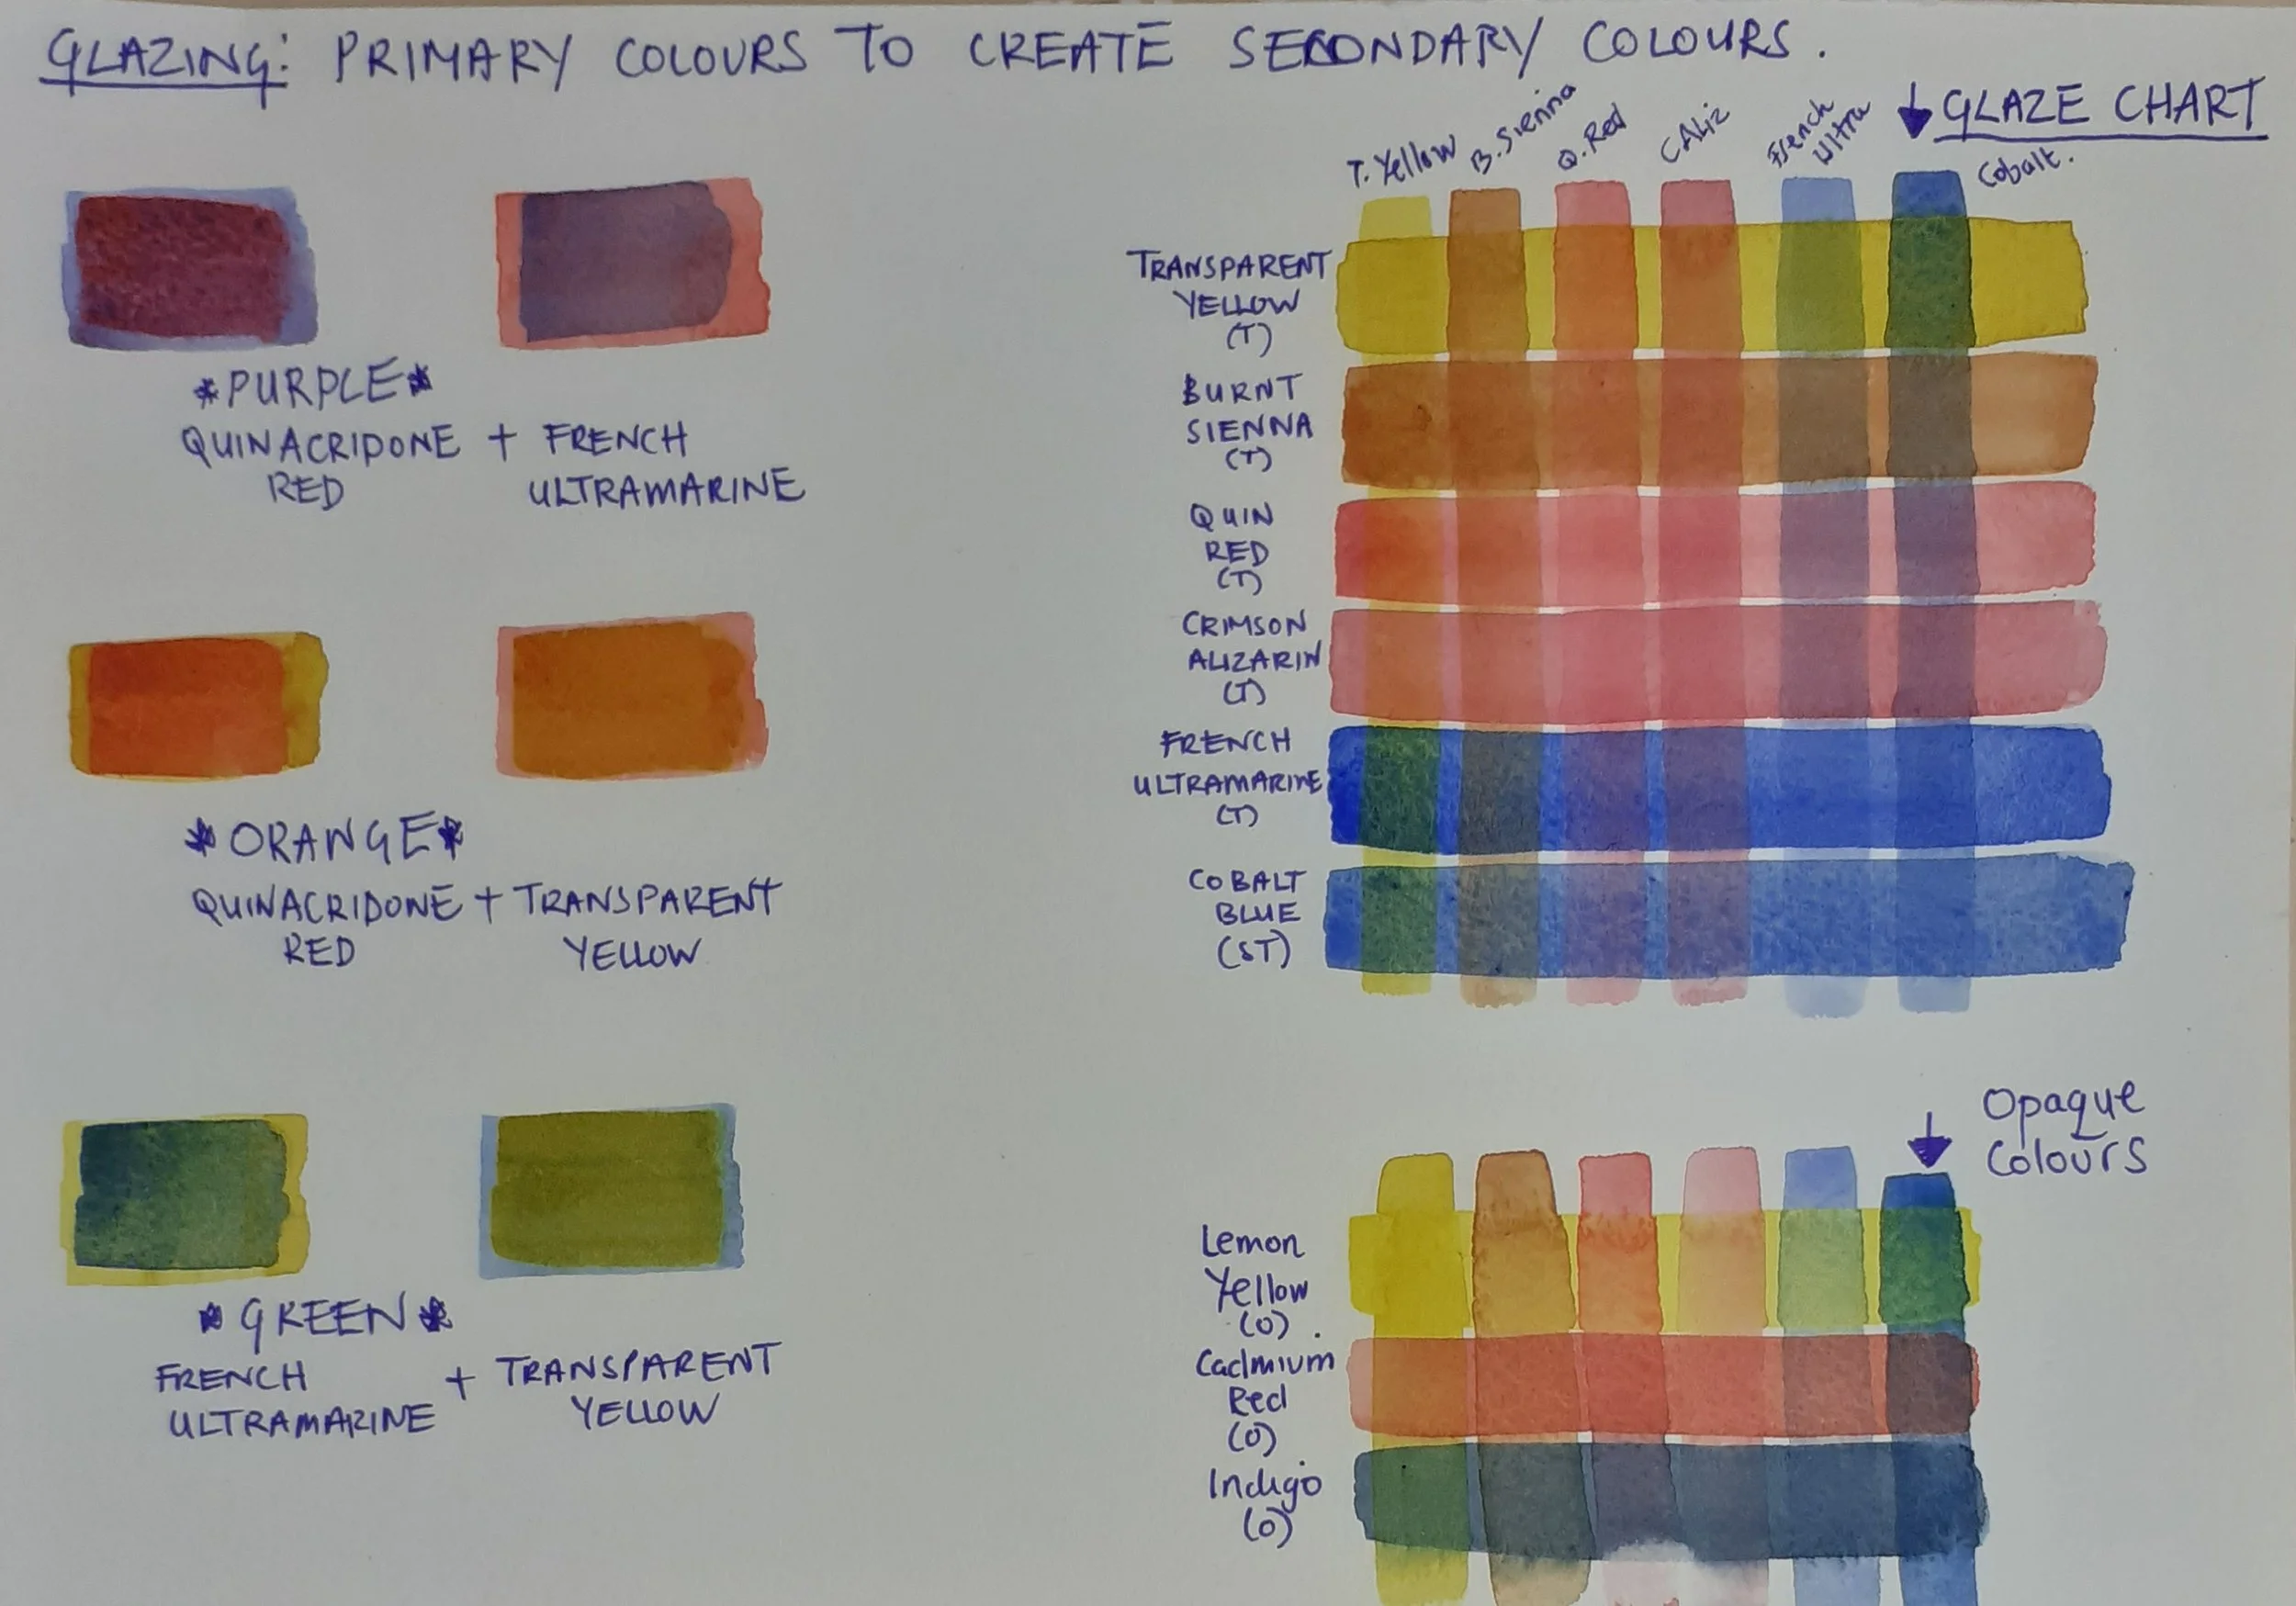 GLAZING: PRIMARY COLOURS TO CREATE SECONDARY COLOURS.
*PURPLE*
QUINACRIDONE + FRENCH
RED ULTRAMARINE
*ORANGE*
QUINACRIDONE + TRANSPARENT
RED YELLOW
*GREEN*
FRENCH + TRANSPARENT
ULTRAMARINE YELLOW
↓ GLAZE CHART
T. Yellow
B. Sienna
Q. Red
C Aliz
French
Ultra
Cobalt.
TRANSPARENT
YELLOW
(T)
BURNT
SIENNA
(T)
QUIN
RED
(T)
CRIMSON
ALIZARIN
(T)
FRENCH
ULTRAMARINE
(T)
COBALT
BLUE
(ST)
Opaque
Colours
Lemon
Yellow
(O).
Cadmium
Red
(O)
Indigo
(O)